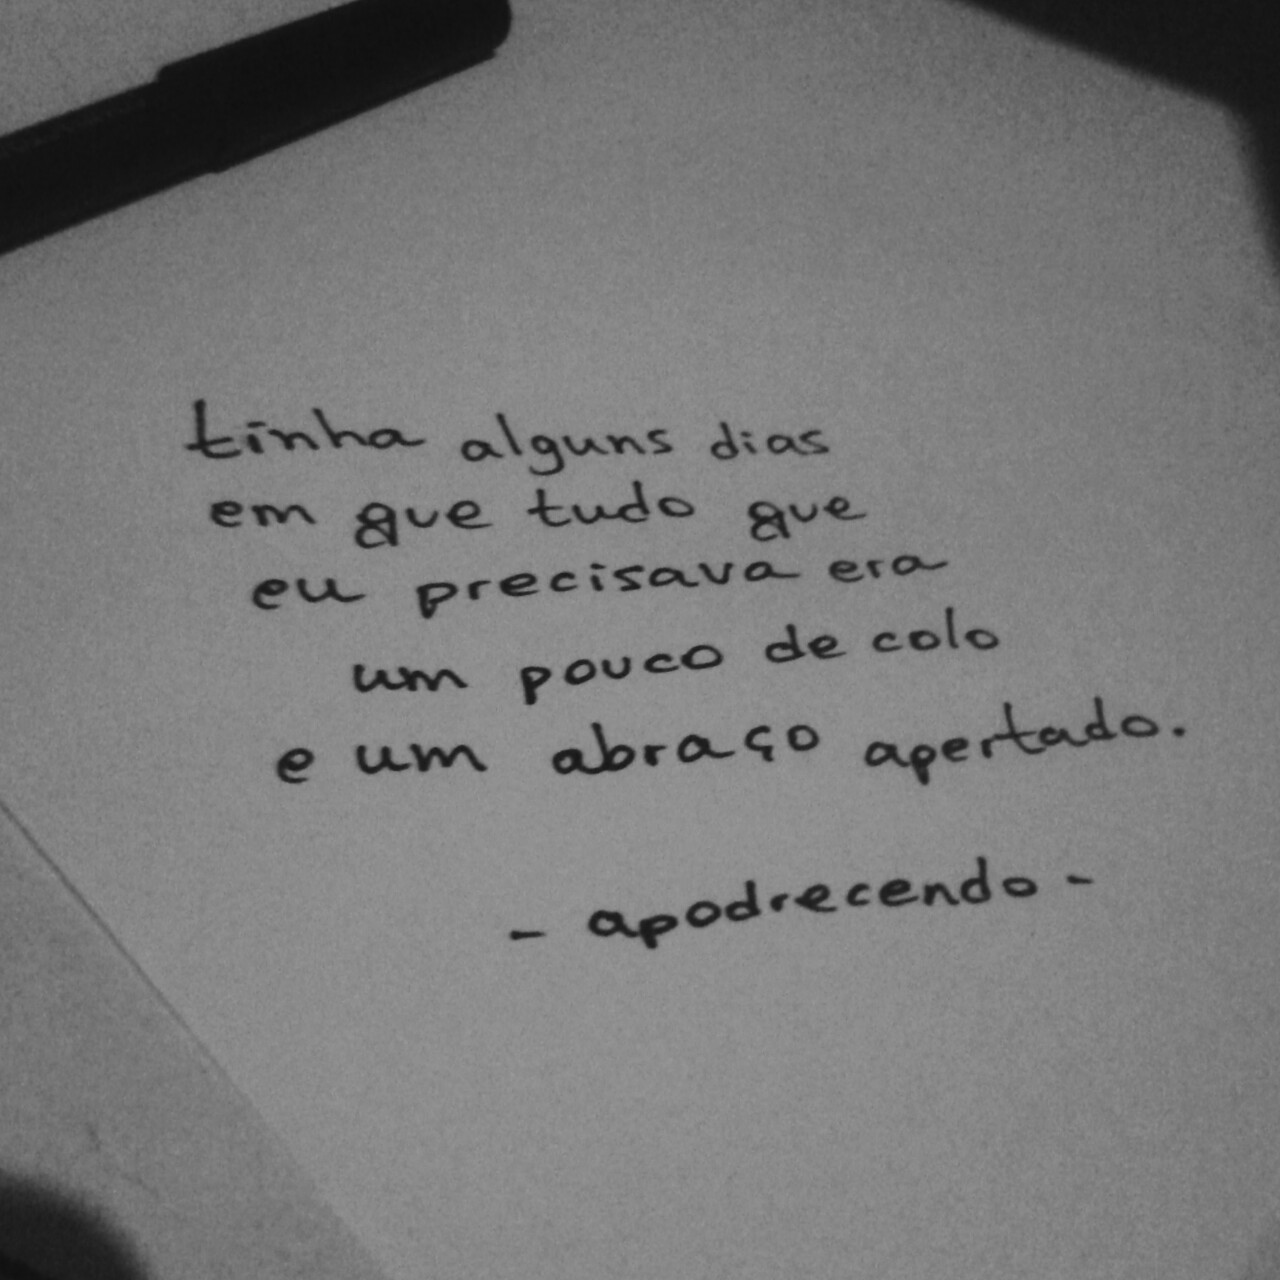 tinha alguns dias
em que tudo que
eu precisava era
um pouco de colo
e um abraço apertado.
- apodrecendo -